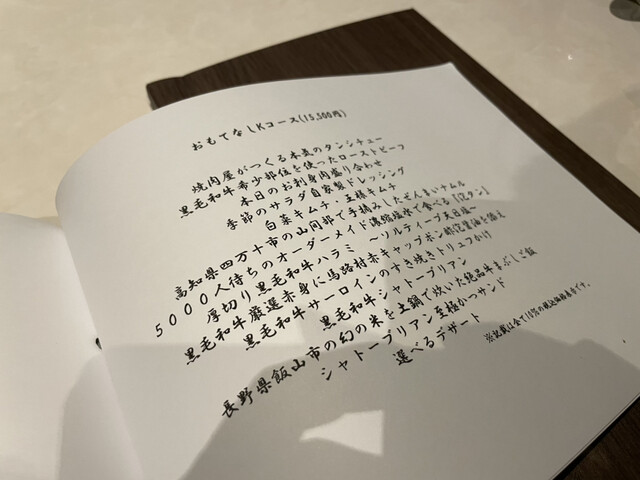 おもてなしKコース(15,500円)
焼肉屋がつくる本気のタンシチュー
黒毛和牛希少部位を使ったローストビーフ
本日のお刺身肉盛り合わせ
季節のサラダ自家製ドレッシング
白菜キムチ・五様キムチ
高知県四万十市の山間部で手摘みしたぜんまいナムル
5000人待ちのオーダーメイド濃縮塩水で食べる【芯タン】
厚切り黒毛和牛ハラミ ～ソルティーブ天日塩～
黒毛和牛厳選赤身に馬路村赤キャップポン酢淀醤油を添え
黒毛和牛サーロインのすき焼きトリュフかけ
黒毛和牛シャトーブリアン
長野県飯山市の幻の米を土鍋で炊いた絶品牛まぶしご飯
シャトーブリアン至極かつサンド
選べるデザート
※記載は全て10%の税込価格表示です。